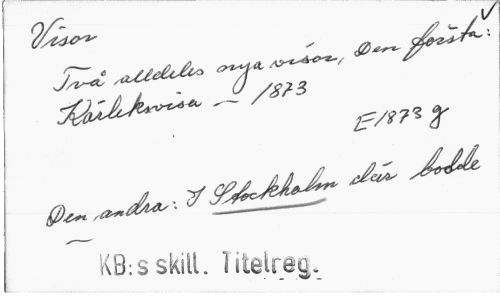 Visor
Två alldeles nya visor, Den första:
Kärleksvisa — 1873
E1873 g
Den andra: I Stockholm där bodde
—
KB:s skill. Titelreg.